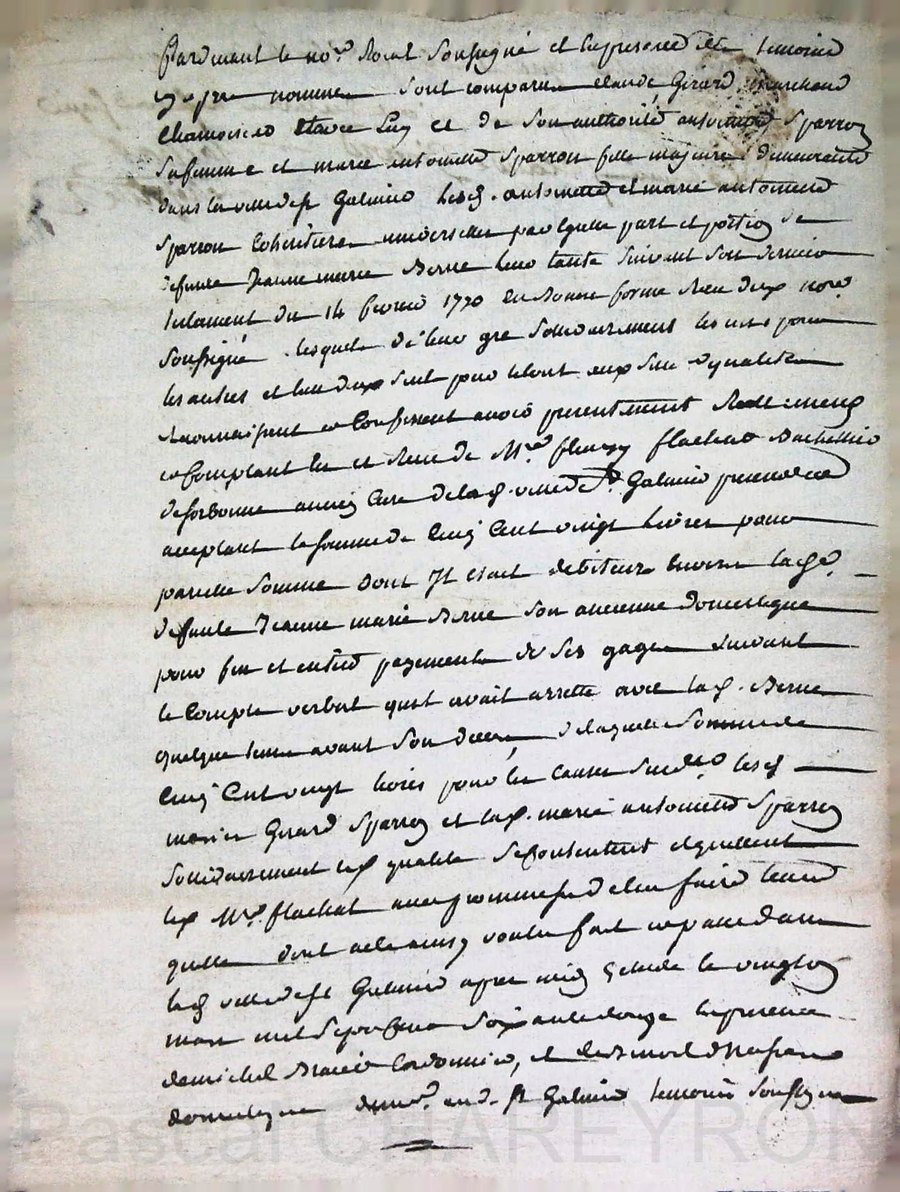 Pardevant le no.re Royal soussigné et en presence des temoins
cy apres nommes sont comparus claude Girard marchand
chamoiseur et avec luy et de son authorité antoinette Sparron
sa femme et marie antoinette Sparron fille majeure demeurants
dans la ville de st Galmier lesd. antoinette et marie antoinette
Sparron coheritieres universelles pour egalle part et portion de
defunte Jeanne marie Berne leur tante suivant son dernier
testament du 14 fevrier 1770 en bonne forme Receu du nore.
soussigné . lesquels de leur gre solidairement les uns pour
les autres et l'un deux seul pour le tout aux susd. qualités
Reconnaissent et confessent avoir presentement Reellement
et comptant eu et Receu de Mre. fleury flachat Bachellier
de sorbonne ancien Curé de lad. ville de st. Galmier present et
acceptant la somme de Cinq Cent vingt livres pour
pareille somme dont Il etait debiteur envers lad.
defunte Jeanne marie Berne son ancienne domestique
pour fin et entier payement de ses gages suivant
le Compte verbal quil avait arrette avec lad. Berne
quelque tems avant son deces, de laquelle somme de
Cinq Cent vingt livres pour les causes susd. lesd
maries Girard Sparron et lad. marie antoinette Sparron
solidairement esd qualités se contentent et quittent
led Mre. flachat avec promesse de l'en faire tenir
quitte dont acte ainsy voulu fait et passé dans
lad ville de st Galmier apres midy Etude le vingt
mars mil sept cent soixante douze en presence
de michel Cordonnier, et de
domestique dud. st Galmier temoins soussignes
Pascal CHAREYRON